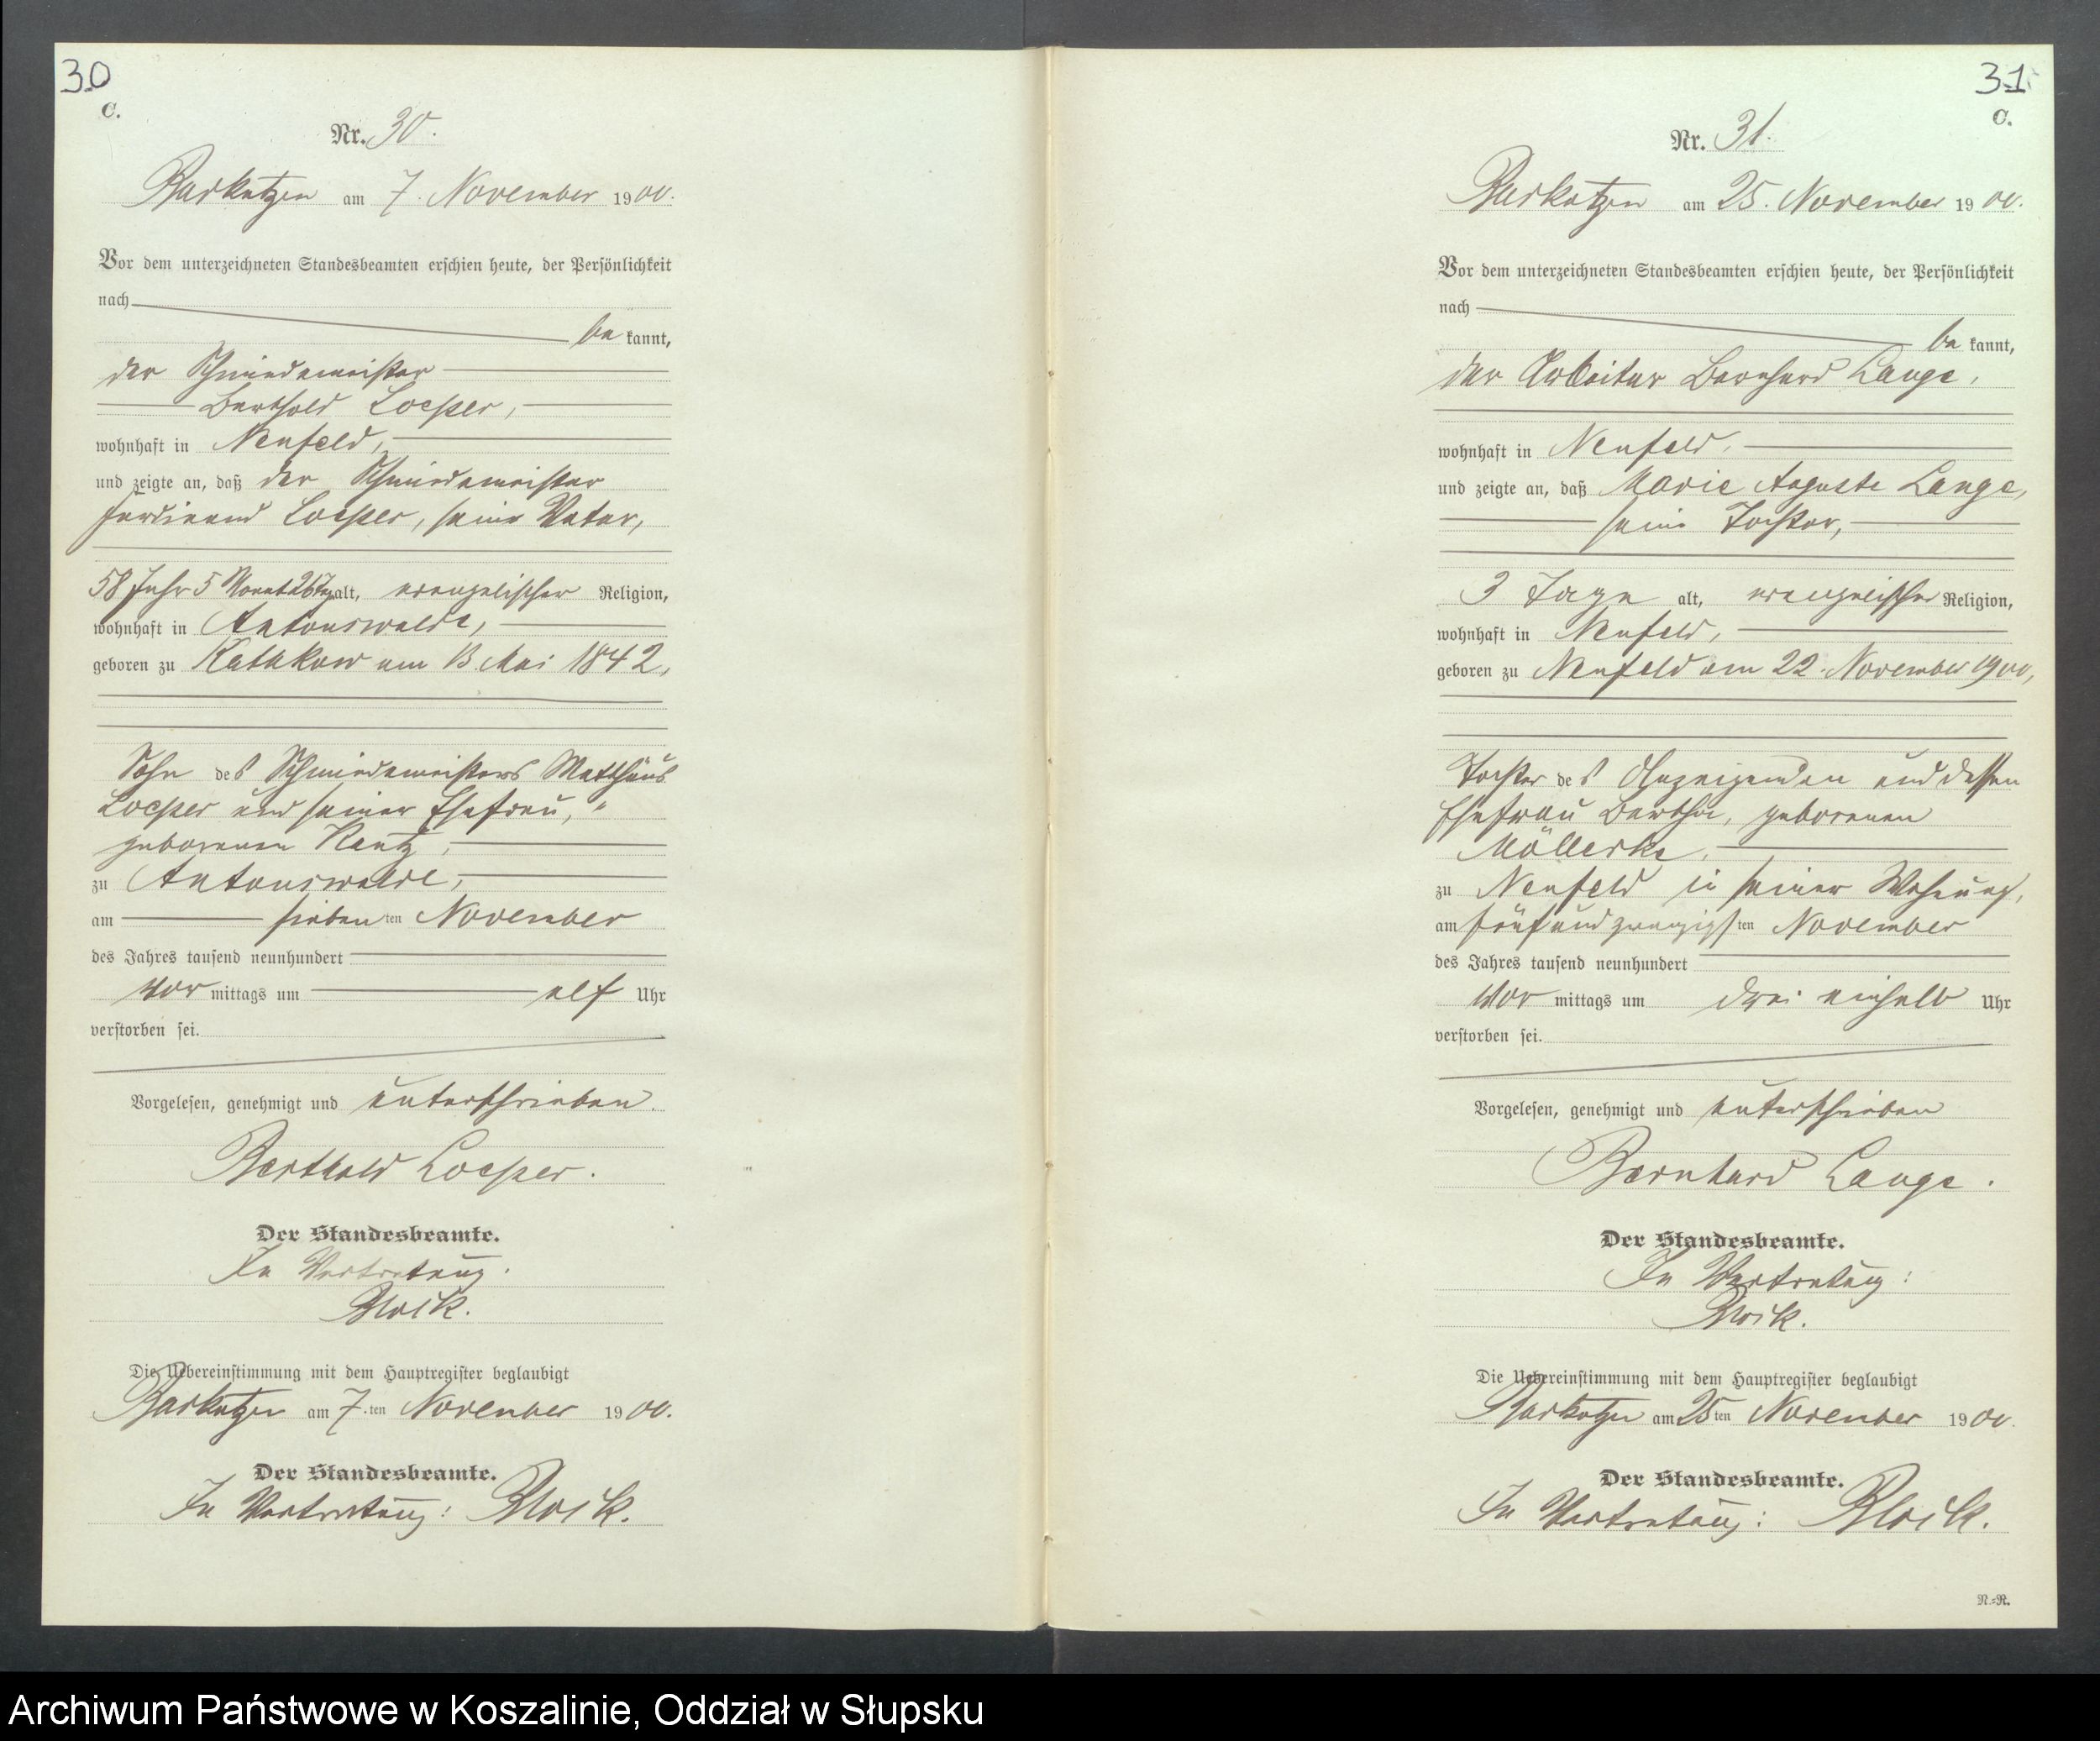 30
C.
Nr. 30.
Barkotzen am 7. November 1900.
Vor dem unterzeichneten Standesbeamten erschien heute, der Persönlichkeit
nach
be kannt,
der Schmiedemeister
Berthold Loeper,
wohnhaft in Neufeld,
und zeigte an, daß der Schmiedemeister
Ferdinand Loeper, sein Vater,
58 Jahr 5 Monat 26 Tg alt, evangelischer Religion,
wohnhaft in Antonswalde,
geboren zu am 13. Mai 1842,
Sohn des Schmiedemeisters Matthäus
Loeper und seiner Ehefrau,
geborenen
zu Antonswalde,
am sieben ten November
des Jahres tausend neunhundert
Vor mittags um elf Uhr
verstorben sei.
Vorgelesen, genehmigt und unterschrieben.
Berthold Loeper.
Der Standesbeamte.
In Vertretung.
Die Uebereinstimmung mit dem Hauptregister beglaubigt
Barkotzen am 7. ten November 1900.
Der Standesbeamte.
In Vertretung:
31
C.
Nr. 31.
Barkotzen am 25. November 1900.
Vor dem unterzeichneten Standesbeamten erschien heute, der Persönlichkeit
nach
be kannt,
der Arbeiter Bernhard Lange,
wohnhaft in Neufeld,
und zeigte an, daß Marie Auguste Lange,
seine Tochter,
3 Tage alt, evangelischer Religion,
wohnhaft in Neufeld,
geboren zu Neufeld am 22. November 1900,
Tochter des Anzeigenden und dessen
Ehefrau Bertha, geborenen
Möllerke,
zu Neufeld in seiner Wohnung,
am fünfundzwanzigs ten November
des Jahres tausend neunhundert
Vor mittags um drei einhalb Uhr
verstorben sei.
Vorgelesen, genehmigt und unterschrieben
Bernhard Lange.
Der Standesbeamte.
In Vertretung:
Die Uebereinstimmung mit dem Hauptregister beglaubigt
Barkotzen am 25 ten November 1900.
Der Standesbeamte.
In Vertretung:
N.-R.
Archiwum Państwowe w Koszalinie, Oddział w Słupsku